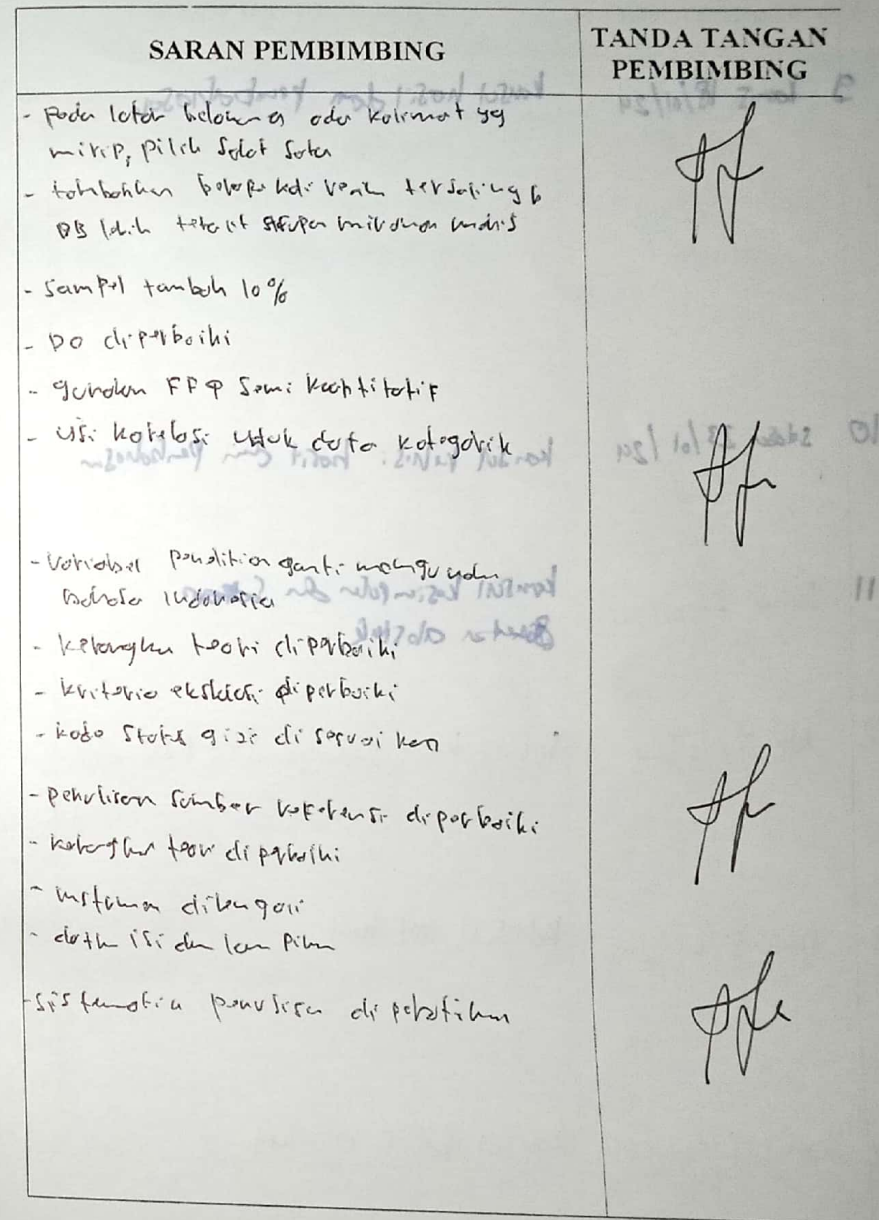 SARAN PEMBIMBING
TANDA TANGAN
PEMBIMBING
- pada latar belakang ada kalimat yg
mirip, pilih salah satu
- tambahkan
DB lebih minuman manis
- Sampel tambah 10%
- DO diperbaiki
- gunakan FFQ Semi kuantitatif
- uji korelasi untuk data kategorik
- Variabel penelitian ganti menggunakan
bahasa Indonesia
- kerangka teori diperbaiki
- kriteria eksklusi diperbaiki
- kode status gizi disesuaikan
- penulisan sumber referensi diperbaiki
- kerangka teori diperbaiki
- instrumen dilengkapi
- daftar isi dan lampiran
- sistematika penulisan diperhatikan